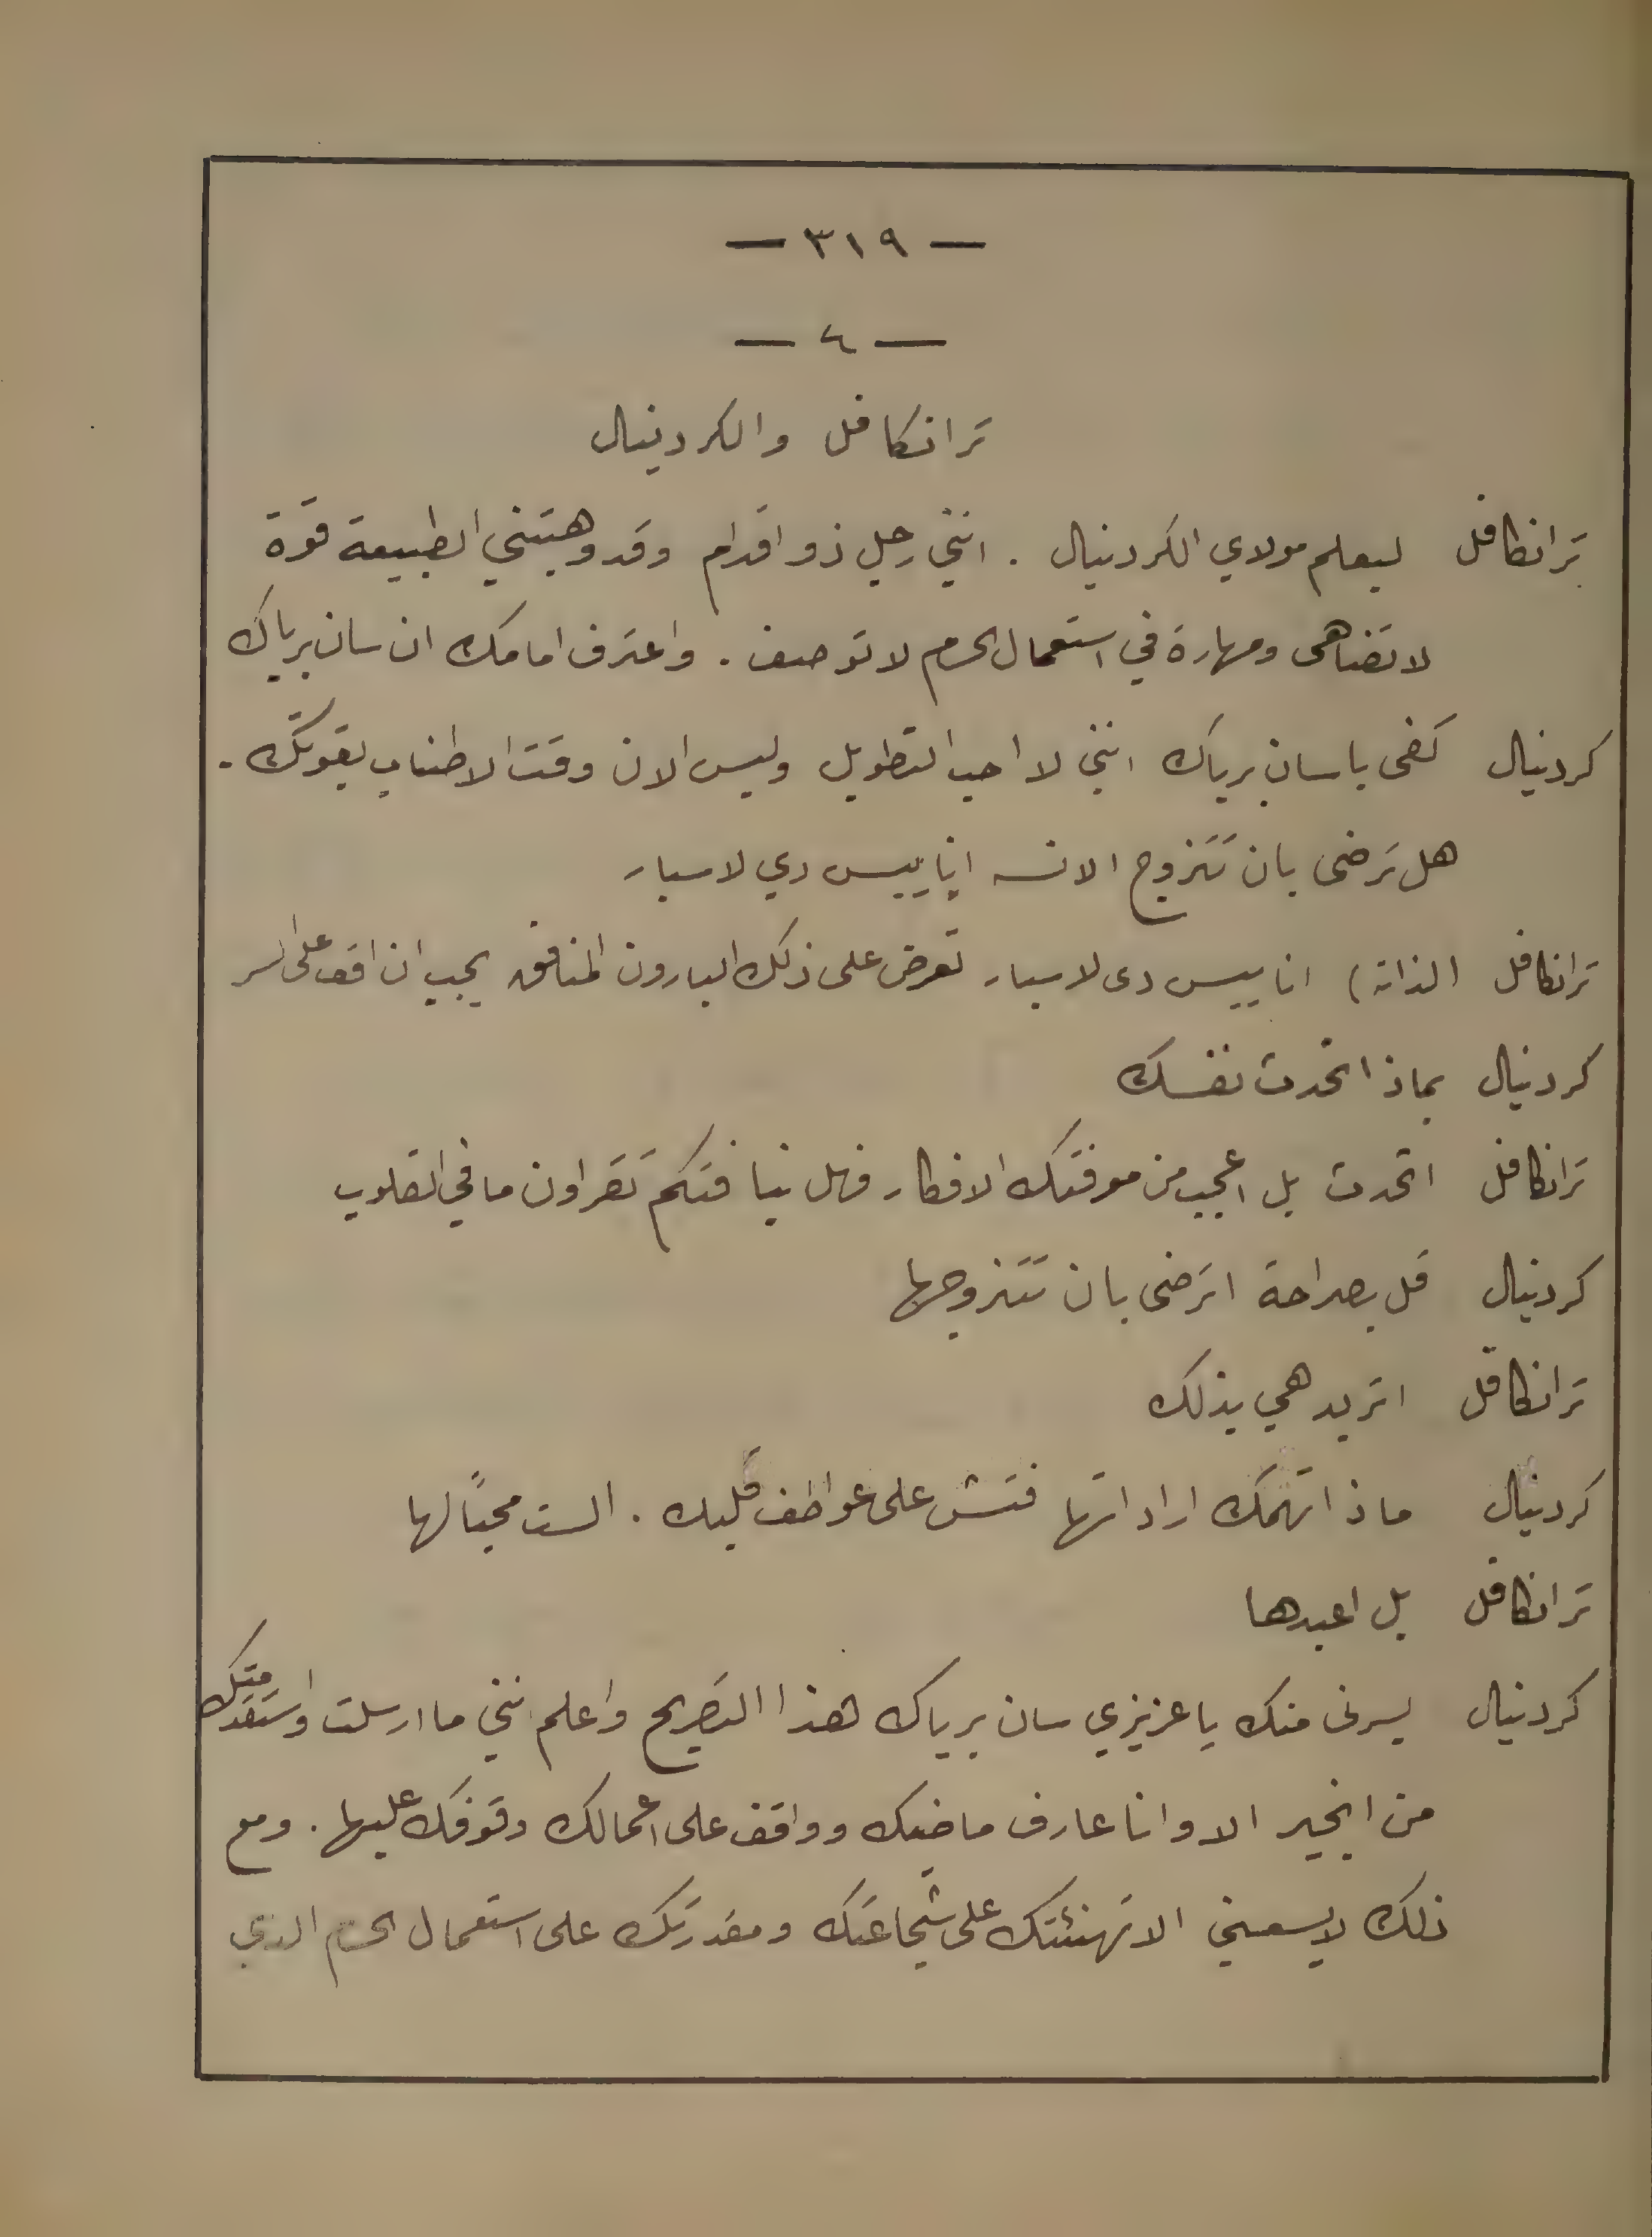 — ٣١٩ —
— ٤ —
ترانكافل والكردينال
ترانكافل ليعلم مولاي الكردينال . انني رجل ذو اقدام وقد وهبتني الطبيعة قوة
لا تضاهى ومهارة في استعمال الحسام لا توصف . واعترف امامك ان سان برياك
كردينال كفى يا سان برياك انني لا احب التطويل وليس الان وقت الاطناب بقوتك .
هل ترضى بان تتزوج الانسه اناييس دي لاسبار
ترانكافل (لذاته) اناييس دى لاسبار تعرض على ذلك البارون المنافق يجب ان اقف على السر
كردينال بماذا اتحدث نفسك
ترانكافل اتحدث بل اعجب من موقتك الافكار فهل نيافتكم تقراون ما في القلوب
كردينال قل بصراحة اترضى بان تتزوجها
ترانكافل اتريد هي بذلك
كردينال ماذا تهمك اراداتها فتش على عواطف قلبك . الست محبًا لها
ترانكافل بل اعبدها
كردينال يسرنى منك يا عزيزي سان برياك هذا التصريح واعلم انني ما ارسلت واستقدمتك
من انجير الا وانا عارف ماضيك وواقف على اعمالك وقوفك عليها . ومع
ذلك لا يسعني الا تهنئتك على شجاعتك ومقدرتك على استعمال الحسام الذي